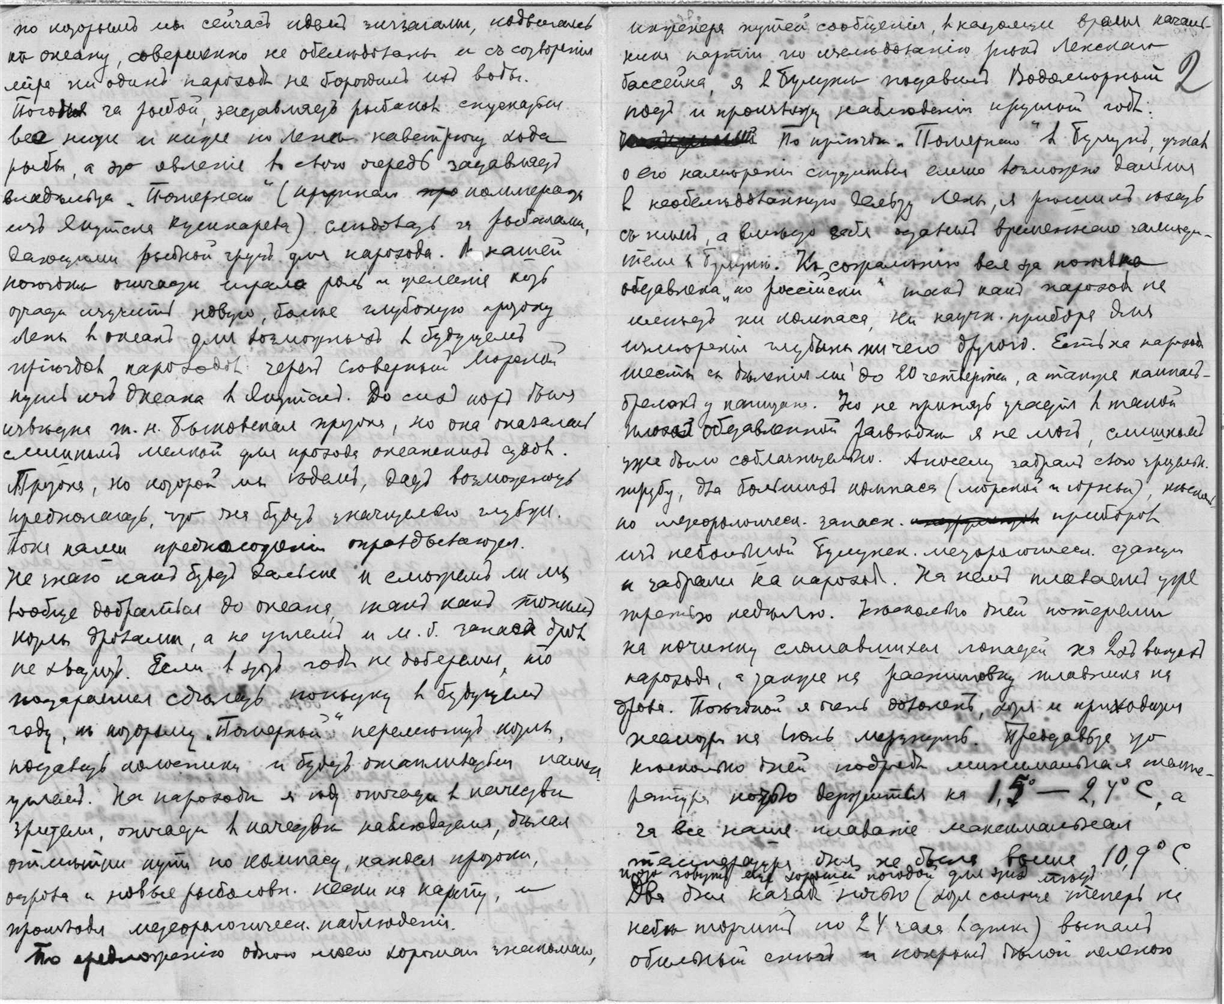 по которымъ мы сейчасъ идемъ зигзагами, подвигаясь
къ океану, совершенно не обслѣдованы и съ сотворенія
міра ни одинъ пароходъ не бороздилъ ихъ воды.
Погоня за рыбой, заставляетъ рыбаковъ спускаться
все ниже и ниже по Ленѣ навстрѣчу хода
рыбы, а это явленіе въ свою очередь заставляетъ
владѣльца „Полярнаго“ (крупнаго коммерсанта
изъ Якутска Кушнарева) слѣдовать за рыбаками,
дающими рыбной грузъ для парохода. Въ нашей
поѣздкѣ отчасти играла роль и желаніе хоть
отчасти изучить новую, болѣе глубокую протоку
Лены въ океанъ для возможныхъ въ будущемъ
проходовъ пароходовъ черезъ Сѣверный Морской
путь изъ Океана въ Якутскъ. До сихъ поръ была
извѣстна т. н. Быковская протока, но она оказалась
слишкомъ мелкой для прохода океанскихъ судовъ.
Протока, по которой мы идемъ, даетъ возможность
предполагать, что она будетъ значительно глубже.
Пока наши предположенія оправдываются.
Не знаю какъ будетъ дальше и сможемъ ли мы
вообще добраться до океана, такъ какъ топимъ
котлы дровами, а не углемъ и м. б. запаса дровъ
не хватитъ. Если въ этотъ годъ не доберемся, то
постараемся сдѣлать попытку въ будущемъ
году, къ которому „Полярный“ перемѣнитъ котлы,
поставитъ колосники и будетъ отапливаться нашимъ
углемъ. На пароходѣ я иду отчасти въ качествѣ
зрителя, отчасти въ качествѣ наблюдателя, дѣлая
отмѣтки пути по компасу, нанося протоки,
острова и новые рыболовн. пески на карту, и
производя метеорологическ. наблюденія.
По предложенію одного моего хорошаго знакомаго,
инженера путей сообщенія, въ настоящее время началь-
ника партіи по изслѣдованію рѣкъ Ленскаго
2
бассейна, я въ Булунѣ поставилъ Водомѣрный
постъ и произвожу наблюденія круглый годъ.
По приходѣ „Полярнаго“ въ Булунъ, узнавъ
о его намѣреніи спуститься елико возможно дальше
въ необслѣдованную дельту Лены, я рѣшилъ ѣхать
съ нимъ, а вмѣсто себя оставилъ временнаго замѣсти-
теля въ Булунѣ. Къ сожалѣнію вся эта поѣздка
обставлена „по россійски“ такъ какъ пароходъ не
имѣетъ ни компаса, ни научн. прибора для
измѣренія глубины ничего другого. Есть на пароходѣ
шестъ съ дѣленіями до 20 четвертей, а также компасъ-
брелокъ у капитана. Но не принять участія въ такой
плохо обставленной развѣдкѣ я не могъ, слишкомъ
ужъ было соблазнительно. А посему забралъ свою зрительн.
трубу, два большихъ компаса (морской и горный), нѣсколько
метеорологическ. запасн. приборовъ
изъ небольшой Булунск. метеорологическ. станціи
и забрали на пароходъ. На немъ плаваемъ уже
третью недѣлю. Нѣсколько дней потеряли
на починку сломавшихся лопастей
парохода, а также на распиловку плавника на
дрова. Поѣздкой я очень доволенъ, хотя и приходится
несмотря на Іюль мерзнуть. Представьте что
нѣсколько дней подрядъ минимальная темпе-
ратура ночью держится на 1,5° — 2,4° С, а
за все наше плаваніе максимальная
температура дня не была выше 10,9° С
Два дня назадъ ночью (хотя солнце теперь на
небѣ торчитъ по 24 часа въ сутки) выпалъ
обильный снѣгъ и покрылъ бѣлой пеленою